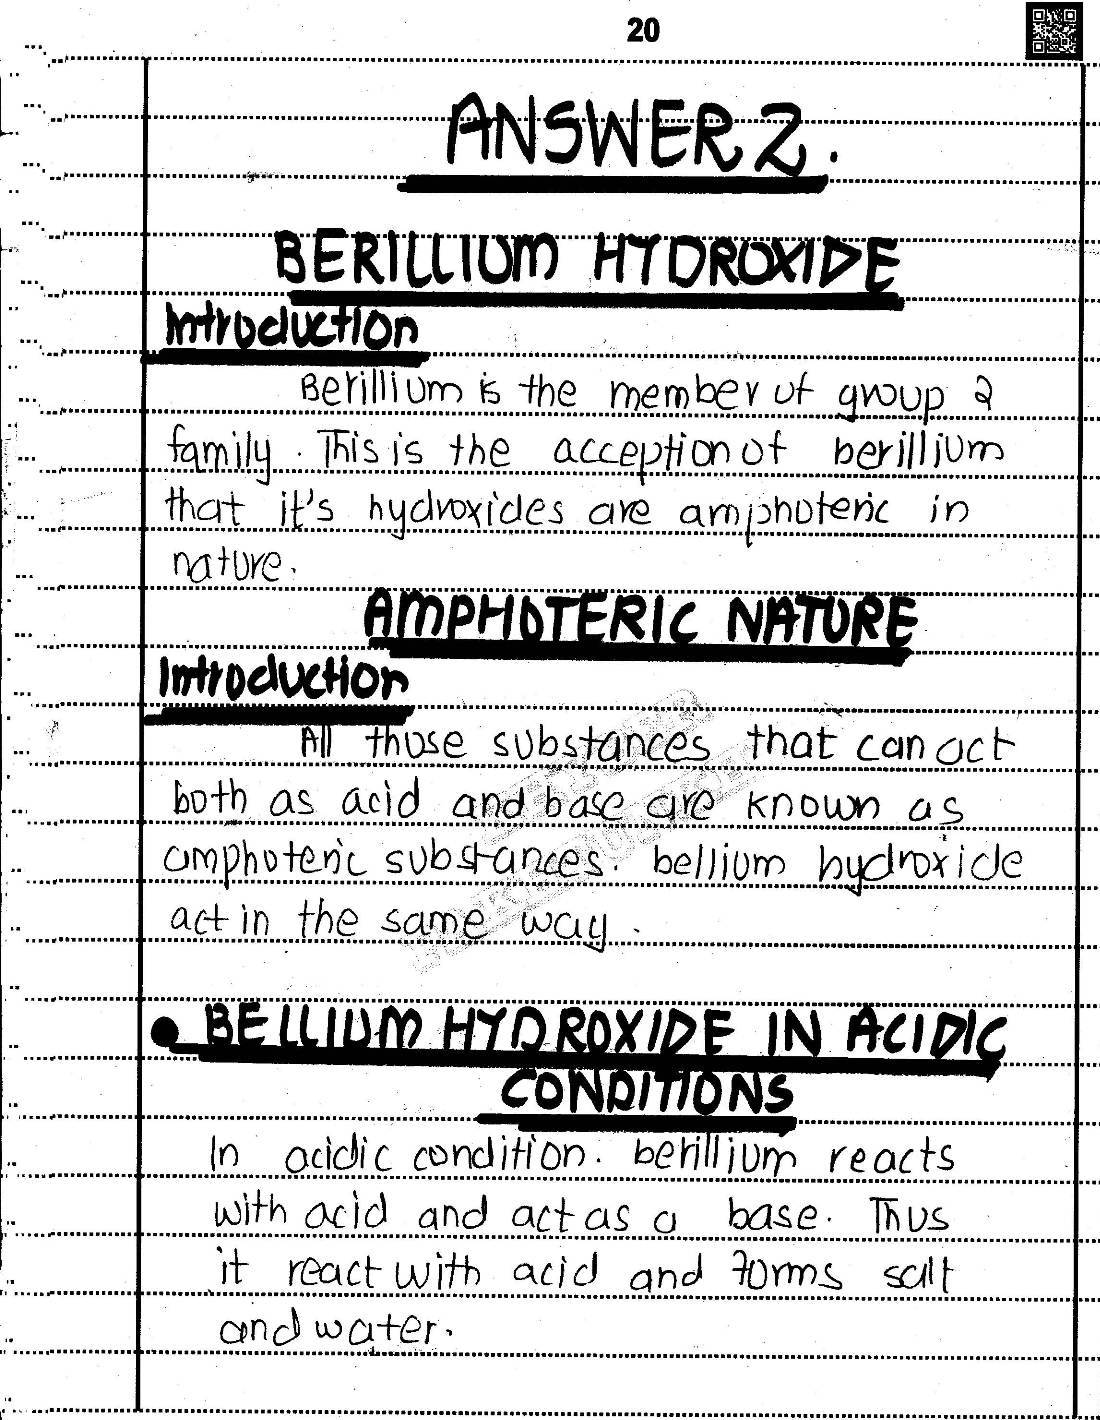 20
ANSWER 2.
BERILLIUM HYDROXIDE
Introduction
Berillium is the member of group 2
family. This is the acception of berillium
that it's hydroxides are amphoteric in
nature.
AMPHOTERIC NATURE
Introduction
All those substances that can act
both as acid and base are known as
amphoteric substances. bellium hydroxide
act in the same way.
BELLIUM HYDROXIDE IN ACIDIC
CONDITIONS
In acidic condition. berillium reacts
with acid and act as a base. Thus
it react with acid and forms salt
and water.